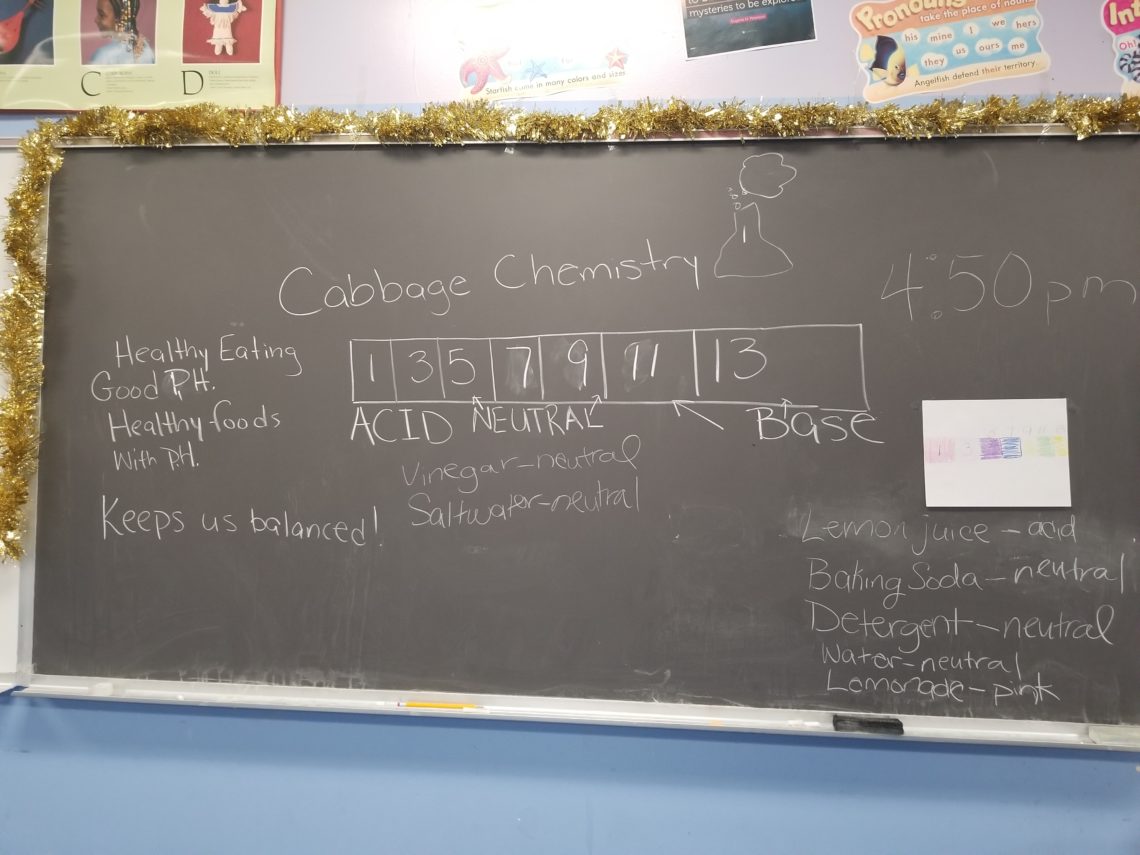 C
D
DOLL
Starfish come in many colors and sizes
mysteries to be explored
Pronouns
take the place of nouns
his mine I we hers
they us ours me
Angelfish defend their territory.
Int
Oh!
1
Cabbage Chemistry
4:50 pm
Healthy Eating
Good P.H.
Healthy foods
With P.H.
Keeps us balanced!
1 3 5 7 9 11 13
ACID NEUTRAL BASE
Vinegar-neutral
Saltwater-neutral
1 3 5 7 9 11
Lemon juice - acid
Baking Soda - neutral
Detergent - neutral
Water-neutral
Lemonade - pink